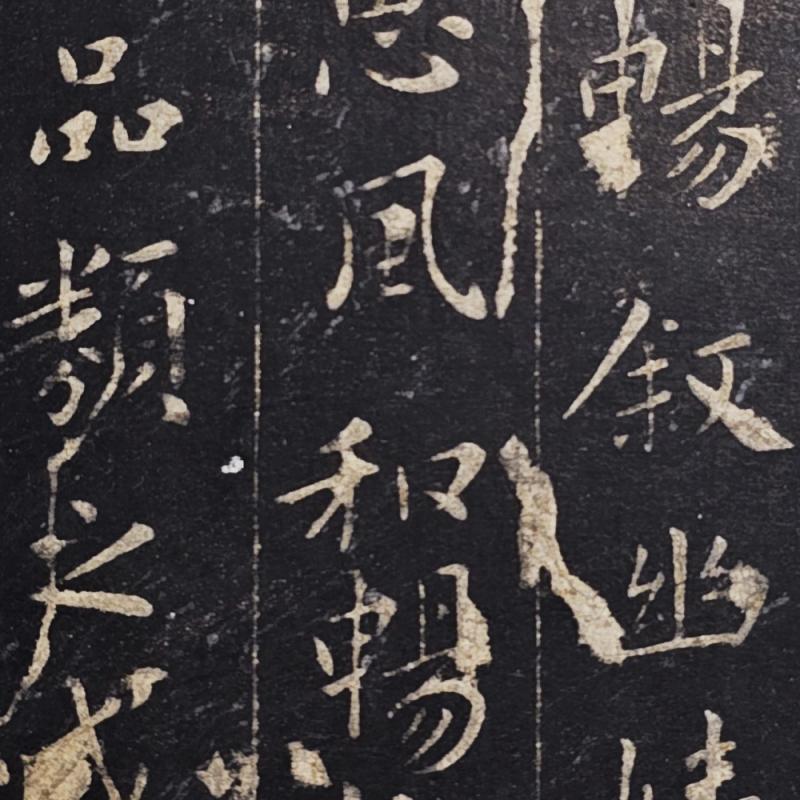 暢叙幽情
惠風和暢
品類之盛